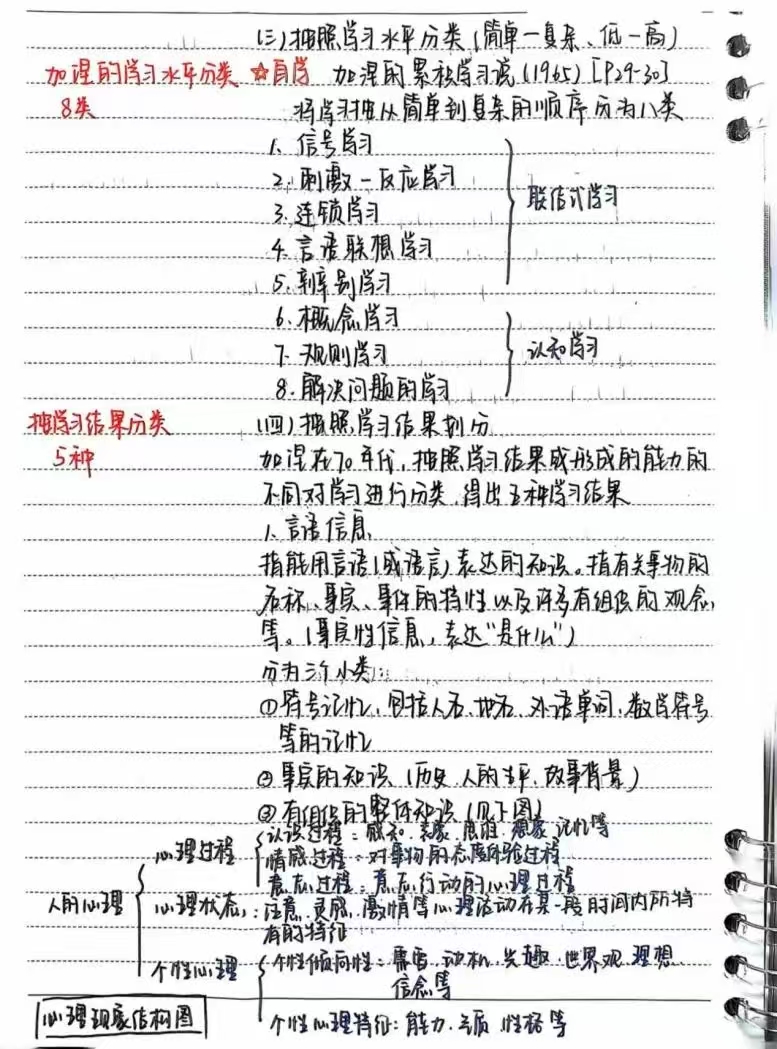 (三)按照学习水平分类(简单—复杂、低—高)
加涅的学习水平分类 ☆自学 加涅的累积学习说(1965)[P29-30]
8类 将学习按从简单到复杂的顺序分为八类
1、信号学习
2、刺激—反应学习
3、连锁学习 联结式学习
4、言语联想学习
5、辨别学习
6、概念学习
7、规则学习 认知学习
8、解决问题的学习
按学习结果分类 (四)按照学习结果划分
5种 加涅在70年代,按照学习结果或形成的能力的
不同对学习进行分类,得出五种学习结果
1、言语信息
指能用言语(或语言)表达的知识。指有关事物的
名称、事实、事件的特性以及许多有组织的观念
等。(事实性信息,表达“是什么”)
分为三个小类:
①符号记忆,包括人名、地名、外语单词、数学符号
等的记忆
②事实的知识(历史、人的生平、故事背景)
③有组织的整体知识(见下图)
认识过程:感知、表象、思维、想象、记忆等
心理过程 情感过程:对事物的态度体验过程
意志过程:意志行动的心理过程
人的心理 心理状态:注意、灵感、激情等心理活动在某一段时间内所特
有的特征
个性心理 个性倾向性:需要、动机、兴趣、世界观、理想、
信念等
心理现象结构图 个性心理特征:能力、气质、性格等